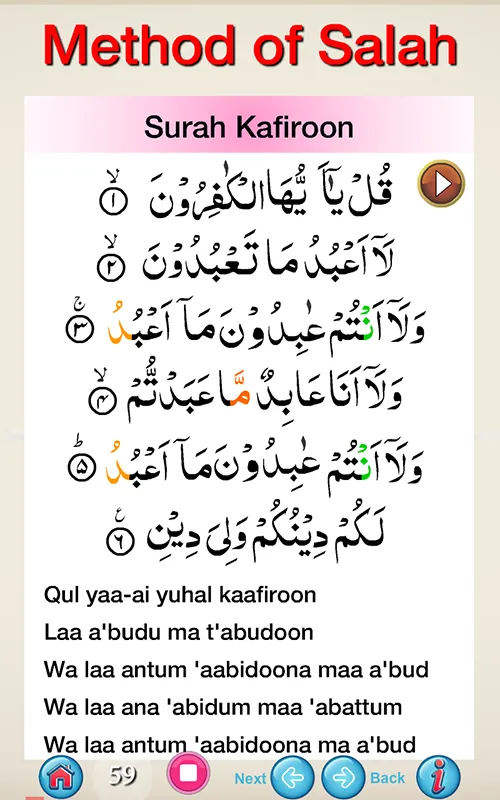 Method of Salah
Surah Kafiroon
قُلْ يٰٓاَيُّهَا الْكٰفِرُوْنَ ۙ﴿۱﴾
لَاۤ اَعْبُدُ مَا تَعْبُدُوْنَ ۙ﴿۲﴾
وَلَاۤ اَنْتُمْ عٰبِدُوْنَ مَاۤ اَعْبُدُ ۚ﴿۳﴾
وَلَاۤ اَنَا عَابِدٌ مَّا عَبَدْتُّمْ ۙ﴿۴﴾
وَلَاۤ اَنْتُمْ عٰبِدُوْنَ مَاۤ اَعْبُدُ ؕ﴿۵﴾
لَكُمْ دِيْنُكُمْ وَلِىَ دِيْنِ ﴿۶﴾ ع
Qul yaa-ai yuhal kaafiroon
Laa a'budu ma t'abudoon
Wa laa antum 'aabidoona maa a'bud
Wa laa ana 'abidum maa 'abattum
Wa laa antum 'aabidoona ma a'bud
59 Next Back i